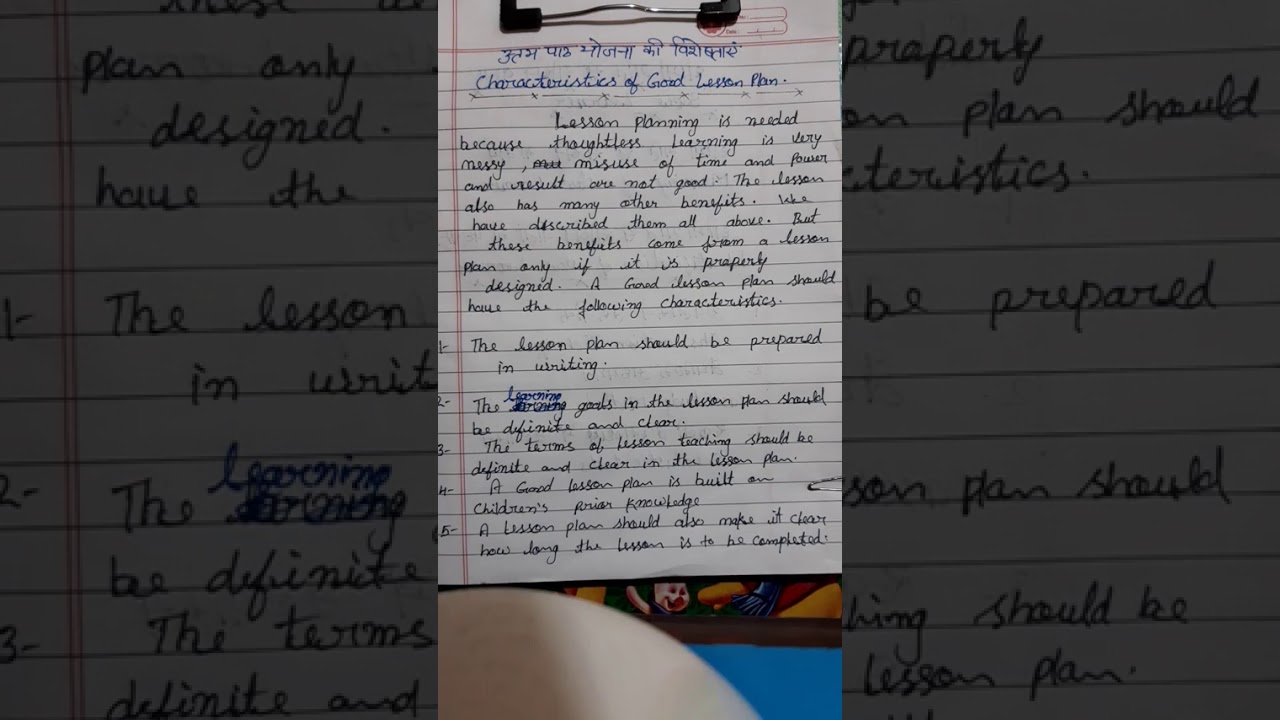 उत्तम पाठ योजना की विशेषताएं
Characteristics of Good Lesson Plan.
Lesson planning is needed
because thoughtless learning is very
messy, misuse of time and Power
and result are not good. The lesson
also has many other benefits. We
have described them all above. But
these benefits come from a lesson
plan only if it is praperly
designed. A Good lesson plan should
have the following characteristics.
1- The lesson plan should be prepared
in writing.
2- The learning goals in the lesson plan should
be definite and clear.
3- The terms of lesson teaching should be
definite and clear in the lesson plan.
4- A Good lesson plan is built on
Children's prior knowledge
5- A Lesson plan should also make it clear
how long the lesson is to be completed.